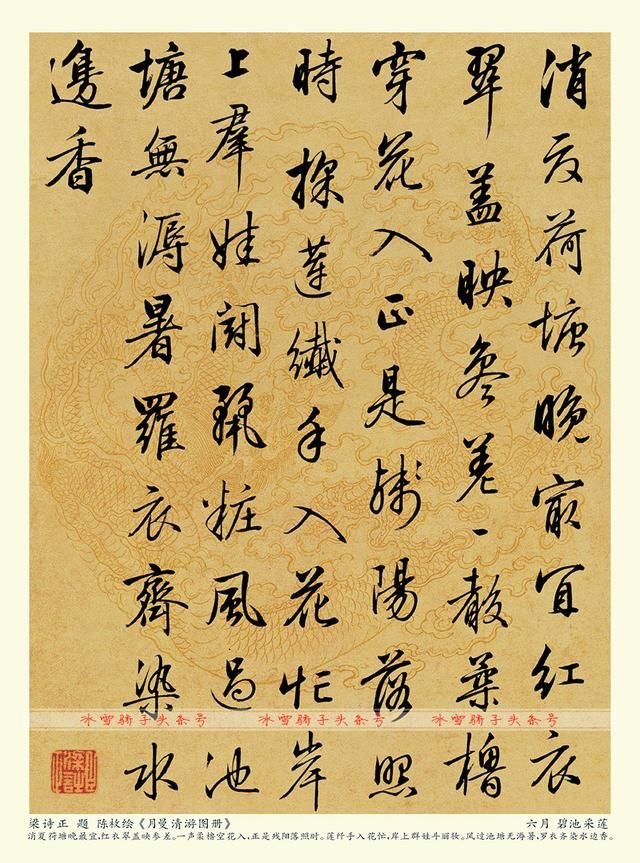 消夏荷塘晚最宜紅衣
翠蓋映參差一聲柔櫓
穿花入正是殘陽落照
時採蓮纖手入花忙岸
上羣娃鬪靚粧風過池
塘無溽暑羅衣齊染水
邊香
冰雪骄子头条号
冰雪骄子头条号
冰雪骄子头条号
梁诗正 题 陈枚绘《月曼清游图册》
六月 碧池采莲
消夏荷塘晚最宜,红衣翠盖映参差。一声柔橹空花入,正是残阳落照时。莲纤手入花忙,岸上群娃斗丽妆。风过池塘无海暑,罗衣齐染水边香。